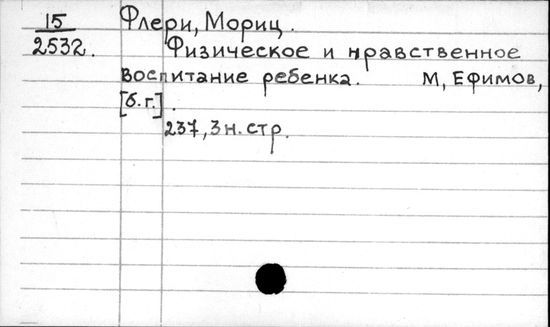 15
2532.
Флери, Мориц.
Физическое и нравственное
воспитание ребенка. М, Ефимов,
[б.г.].
237, 3 н. стр.